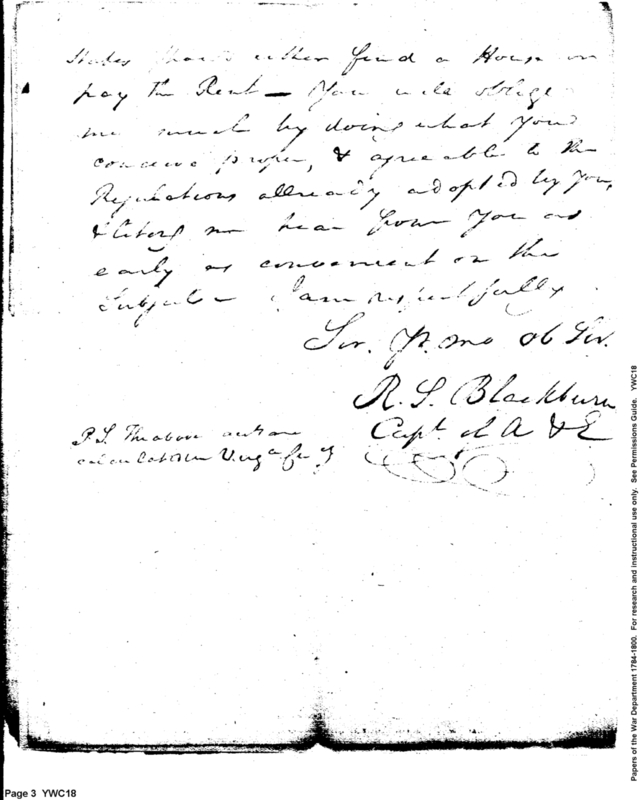 States should either find a House or
pay the Rent — You will oblige
me much by doing what you
conceive proper, & agreeable to the
Regulations allready adopted by you,
& let me hear from you as
early as convenient on the
Subject — I am respectfully
Sir. Yr. mo ob Sir.
R. S. Blackburn
Capt. A & E
P.S. The above acts are
calculated in Virga Cy
Page 3 YWC18
Papers of the War Department 1784-1800. For research and instructional use only. See Permissions Guide. YWC18